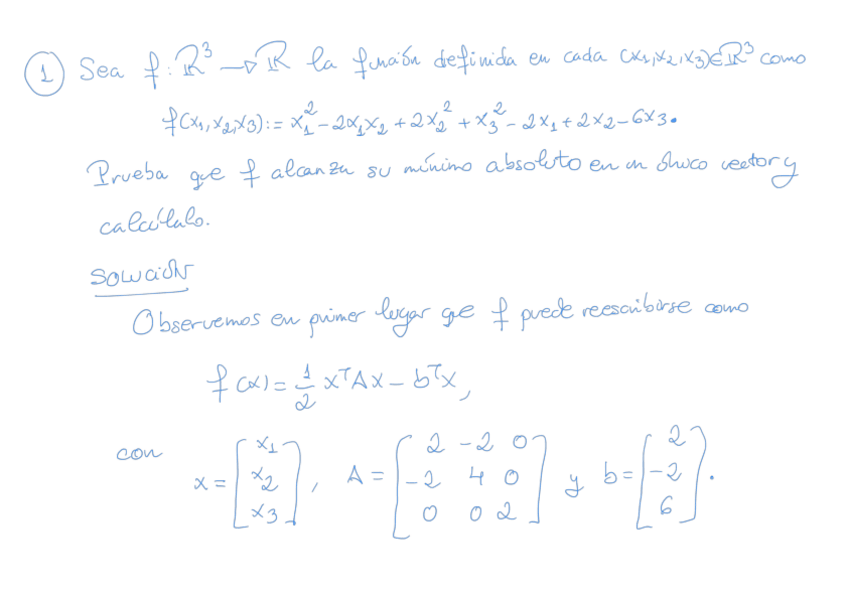 ① Sea f: ℝ³ → ℝ la función definida en cada (x₁,x₂,x₃)∈ℝ³ como
f(x₁,x₂,x₃):= x₁² - 2x₁x₂ + 2x₂² + x₃² - 2x₁ + 2x₂ - 6x₃.
Prueba que f alcanza su mínimo absoluto en un único vector y
calcúlalo.
SOLUCIÓN
Observemos en primer lugar que f puede reescribirse como
f(x) = 1/2 xᵀAx - bᵀx,
con x = [x₁ x₂ x₃], A = [2 -2 0; -2 4 0; 0 0 2] y b = [2 -2 6].